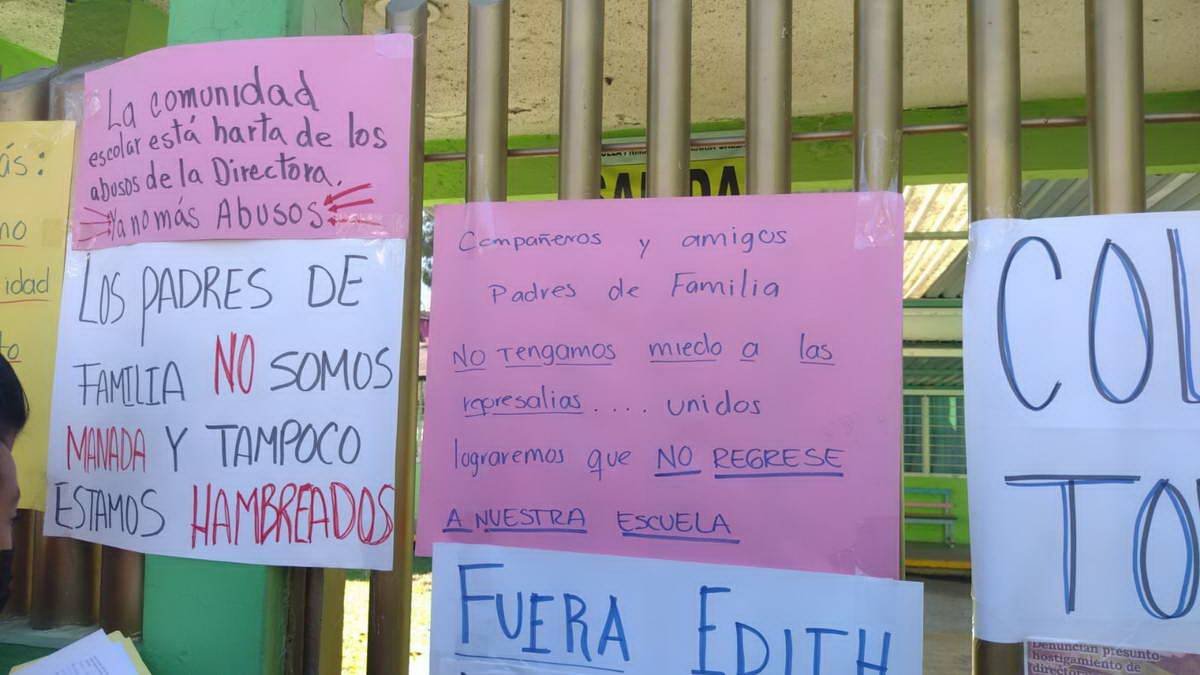 ás:
no
idad
to
La comunidad
escolar está harta de los
abusos de la Directora.
Ya no más Abusos
LOS PADRES DE
FAMILIA NO SOMOS
MANADA Y TAMPOCO
ESTAMOS HAMBREADOS
SALIDA
Compañeros y amigos
Padres de Familia
NO Tengamos miedo a las
represalias.... unidos
lograremos que NO REGRESE
A NUESTRA ESCUELA
FUERA EDITH
COL
TO
Denuncian presunto
hostigamiento de
director